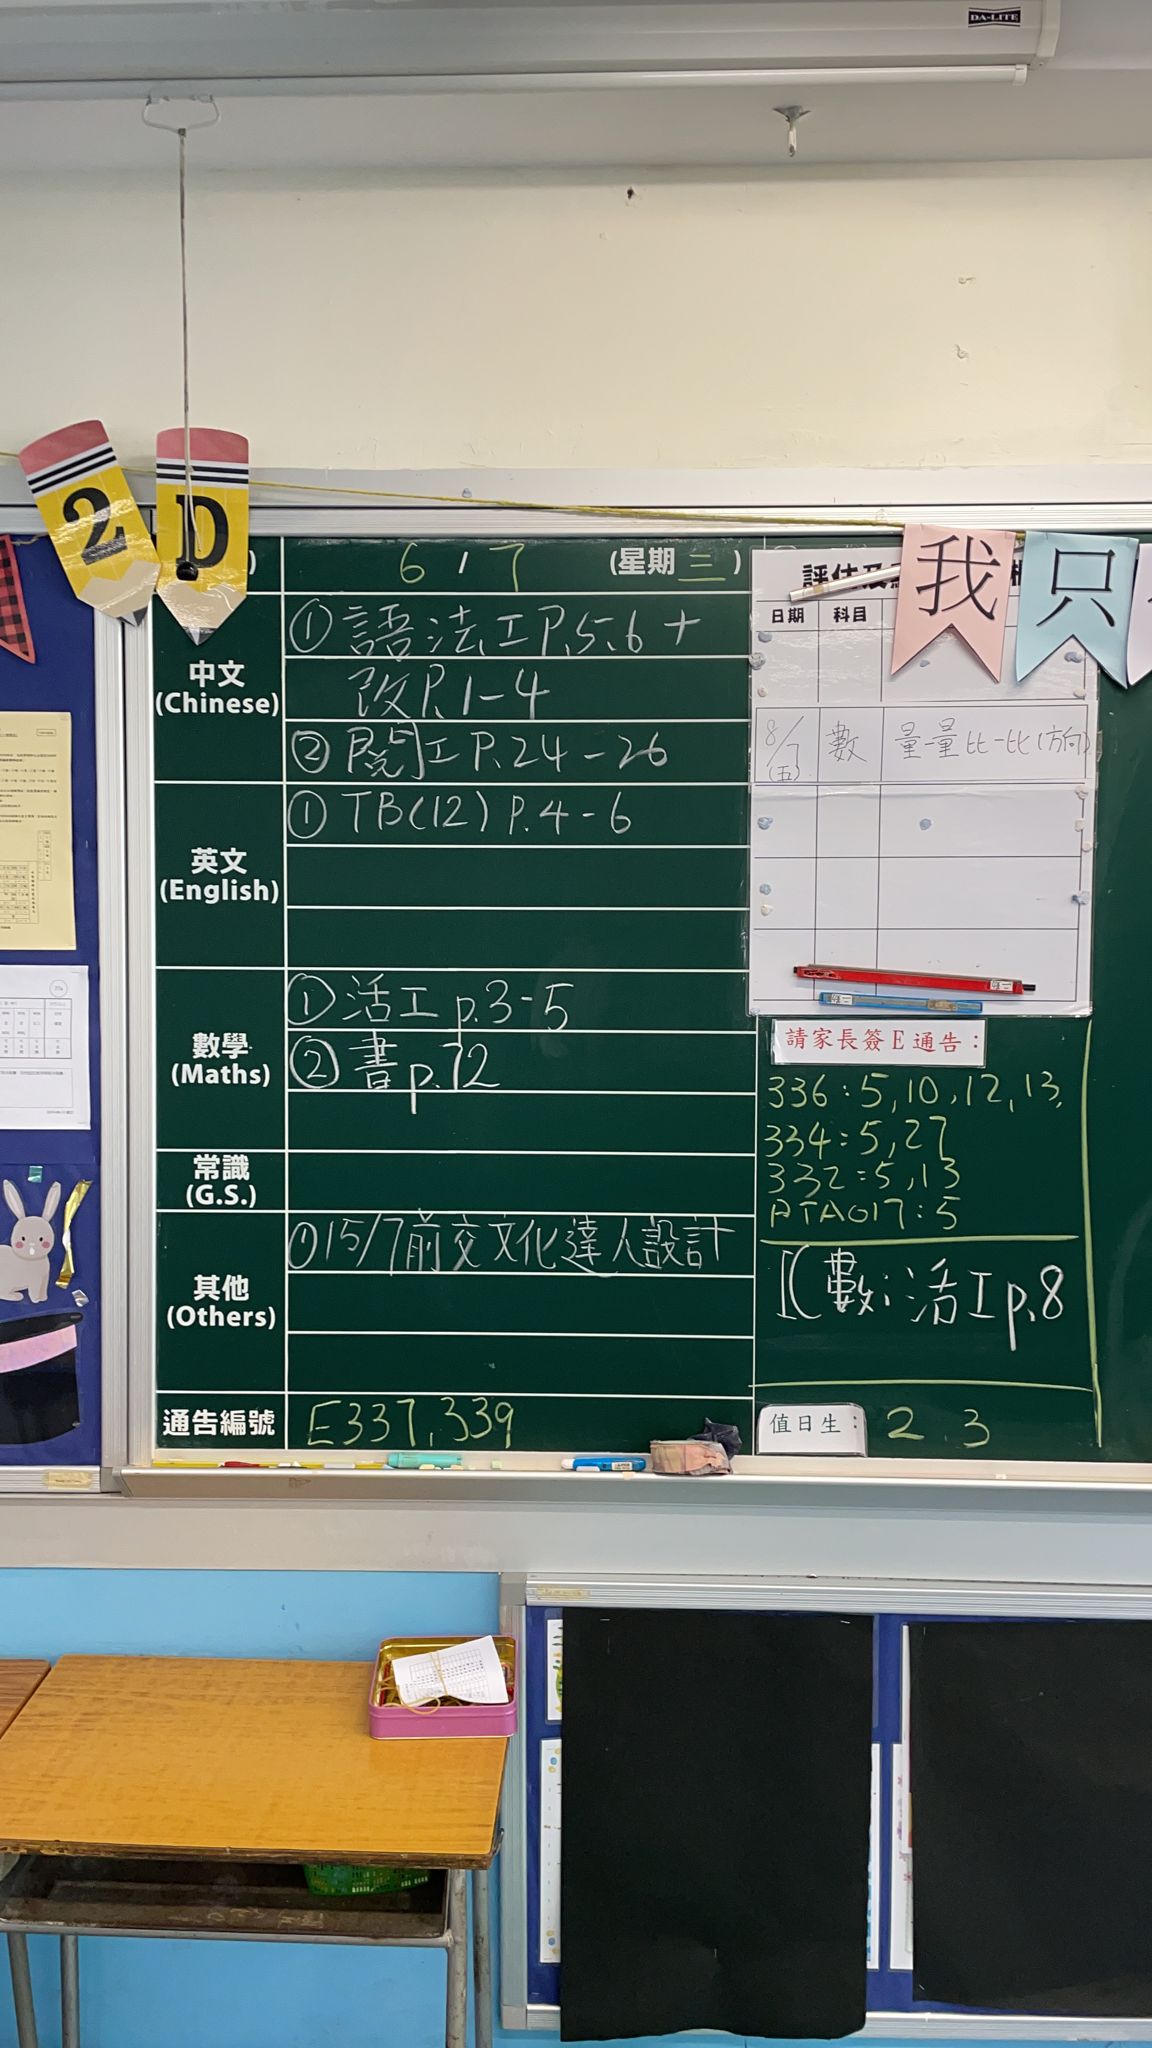 DA-LITE
2D
6 / 7 (星期三)
中文
(Chinese)
① 語法工P.5、6 +
改P.1-4
② 閱工P.24-26
英文
(English)
① TB(12) P.4-6
數學
(Maths)
① 活工p.3-5
② 書p.72
常識
(G.S.)
其他
(Others)
① 15/7前交文化達人設計
通告編號
E337, 339
我只
評估及
日期 科目
8/7 (五) 數 量一量比一比(方向)
請家長簽E通告：
336：5, 10, 12, 13,
334：5, 27
332：5, 13
PTA017：5
數：活工p.8
值日生：
2、3